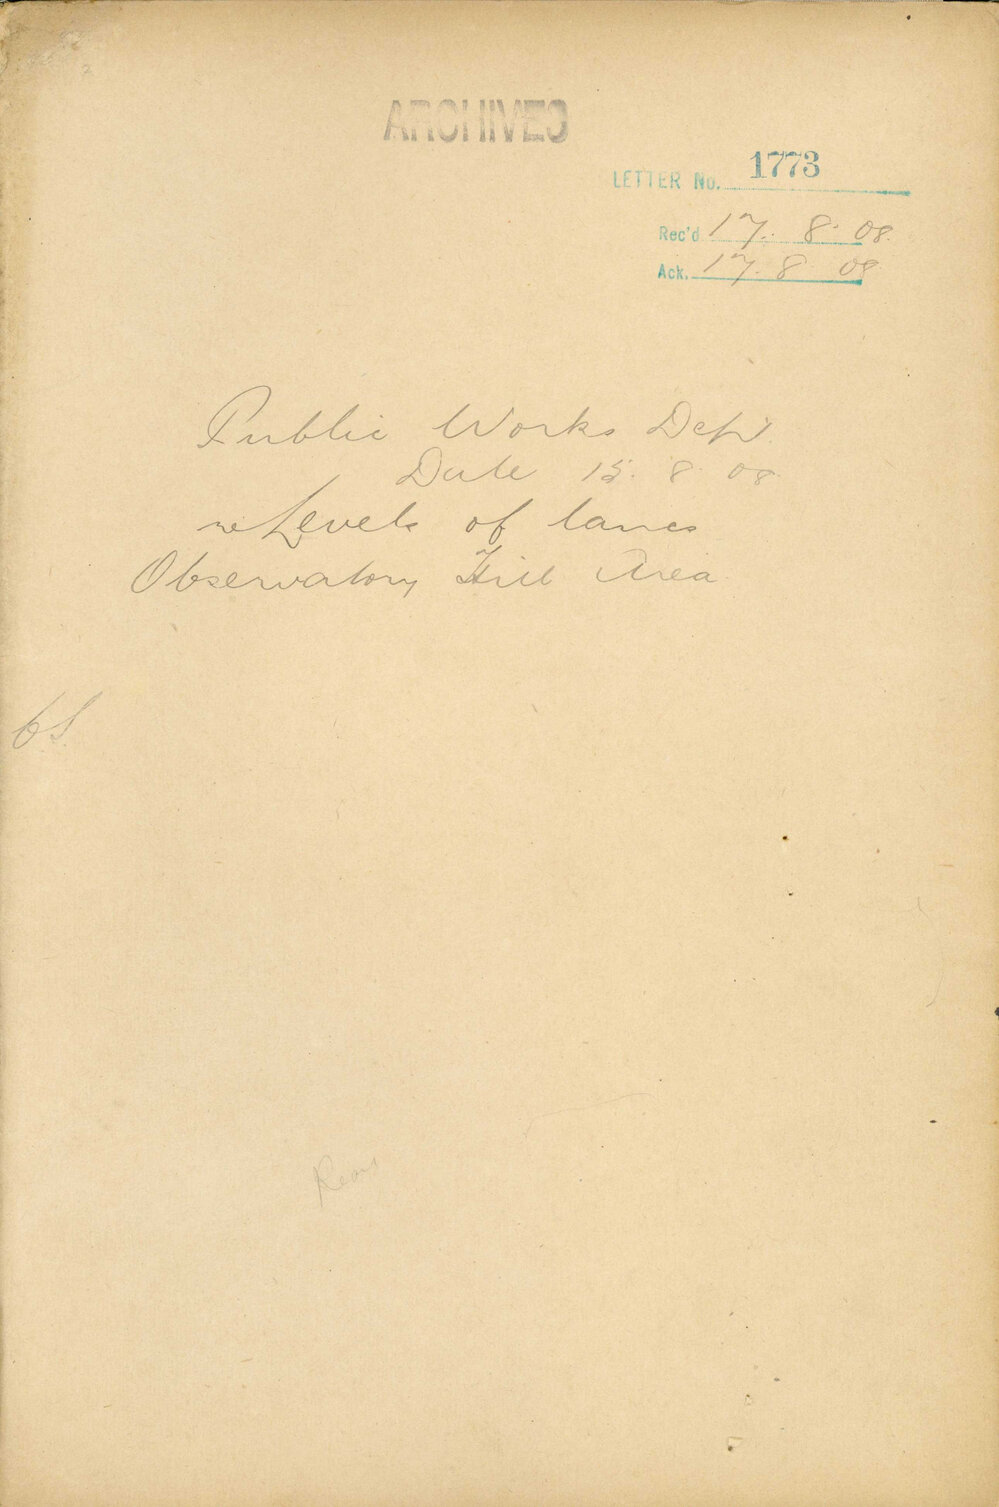 ARCHIVES
LETTER No. 1773
Rec'd 17. 8. 08.
Ack. 17. 8 08
Public Works Dept.
Date 15. 8 08.
re Levels of lanes
Observatory Hill Area